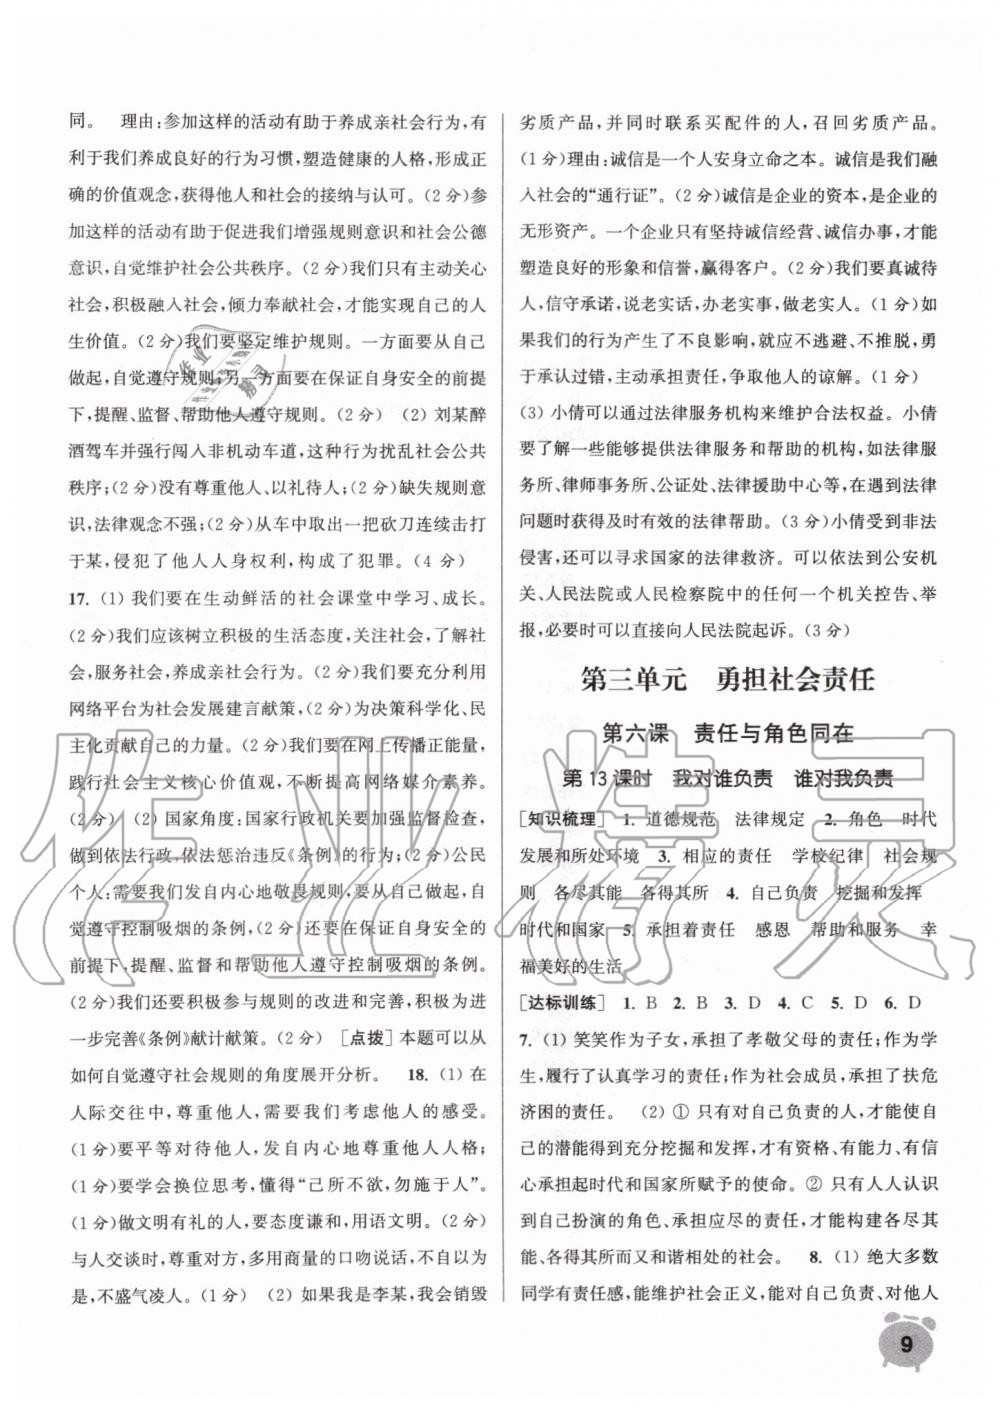 同。 理由:参加这样的活动有助于养成亲社会行为,有
利于我们养成良好的行为习惯,塑造健康的人格,形成正确
的价值观念,获得他人和社会的接纳与认可。(2 分)参
加这样的活动有助于促进我们增强规则意识和社会公德
意识,自觉维护社会公共秩序。(2 分)我们只有主动关心
社会,积极融入社会,倾力奉献社会,才能实现自己的人
生价值。(2 分)我们要坚定维护规则。一方面要从自己
做起,自觉遵守规则;另一方面要在保证自身安全的前提
下,提醒、监督、帮助他人遵守规则。(2 分) (2) 刘某醉
酒驾车并强行闯入非机动车道,这种行为扰乱社会公共
秩序;(2 分)没有尊重他人、以礼待人;(2 分)缺失规则意
识,法律观念不强;(2 分)从车中取出一把砍刀连续击打
于某,侵犯了他人人身权利,构成了犯罪。(4 分)
17. (1) 我们要在生动鲜活的社会课堂中学习、成长。
(2 分)我们应该树立积极的生活态度,关注社会,了解社
会,服务社会,养成亲社会行为。(2 分)我们要充分利用
网络平台为社会发展建言献策,为决策科学化、民
主化贡献自己的力量。(2 分)我们要在网上传播正能量,
践行社会主义核心价值观,不断提高网络媒介素养。
(2 分) (2) 国家角度:国家行政机关要加强监督检查,
做到依法行政,依法惩治违反《条例》的行为;(2 分)公民
个人:需要我们发自内心地敬畏规则,以身作则,自
觉遵守控制吸烟的条例。(2 分)还要在保证自身安全的
前提下,提醒、监督和帮助他人遵守控制吸烟的条例。
(2 分)我们还要积极参与规则的改进和完善,积极为进
一步完善《条例》献计献策。(2 分) [点拨] 本题可以从
如何自觉遵守社会规则的角度展开分析。 18. (1) 在
人际交往中,尊重他人,需要我们考虑他人的感受。
(1 分)要平等对待他人,发自内心地尊重他人人格;
(1 分)要学会换位思考,懂得“己所不欲,勿施于人”。
(1 分)做文明有礼的人,要态度谦和,用语文明。(2 分)
与人交谈时,尊重对方,多用商量的口吻说话,不自以为
是,不盛气凌人。(1 分) (2) 如果我是李某,我会销毁
劣质产品,并同时联系买配件的人,召回劣质产品。
(1 分)理由:诚信是一个人安身立命之本。诚信是我们融
入社会的“通行证”。(2 分)诚信是企业的资本,是企业的
无形资产。一个企业只有坚持诚信经营、诚信办事,才能
塑造良好的形象和信誉,赢得客户。(2 分)我们要真诚待
人,信守承诺,说老实话,办老实事,做老实人。(1 分)如
果我们的行为产生了不良影响,就应不逃避、不推脱,勇
于承认过错,主动承担责任,争取他人的谅解。(1 分)
(3) 小倩可以通过法律服务机构来维护合法权益。小倩
要了解一些能够提供法律服务和帮助的机构,如法律服
务所、律师事务所、公证处、法律援助中心等,在遇到法律
问题时获得及时有效的法律帮助。(3 分)小倩受到非法
侵害,还可以寻求国家的法律救济。可以依法到公安机
关、人民法院或人民检察院中的任何一个机关控告、举
报,必要时可以直接向人民法院起诉。(3 分)
第三单元 勇担社会责任
第六课 责任与角色同在
第 13 课时 我对谁负责 谁对我负责
[知识梳理] 1. 道德规范 法律规定 2. 角色 时代
发展和所处环境 3. 相应的责任 学校纪律 社会规
则 各尽其能 各得其所 4. 自己负责 挖掘和发挥
时代和国家 5. 承担着责任 感恩 帮助和服务 幸
福美好的生活
[达标训练] 1. B 2. B 3. D 4. C 5. D 6. D
7. (1) 笑笑作为子女,承担了孝敬父母的责任;作为学
生,履行了认真学习的责任;作为社会成员,承担了扶危
济困的责任。 (2) ① 只有对自己负责的人,才能使自己
的潜能得到充分挖掘和发挥,才有资格、有能力、有信
心承担起时代和国家所赋予的使命。② 只有人人认识
到自己扮演的角色、承担应尽的责任,才能构建各尽其
能、各得其所而又和谐相处的社会。 8. (1) 绝大多数
同学有责任感,能维护社会正义,能对自己负责、对他人
9
作业精灵